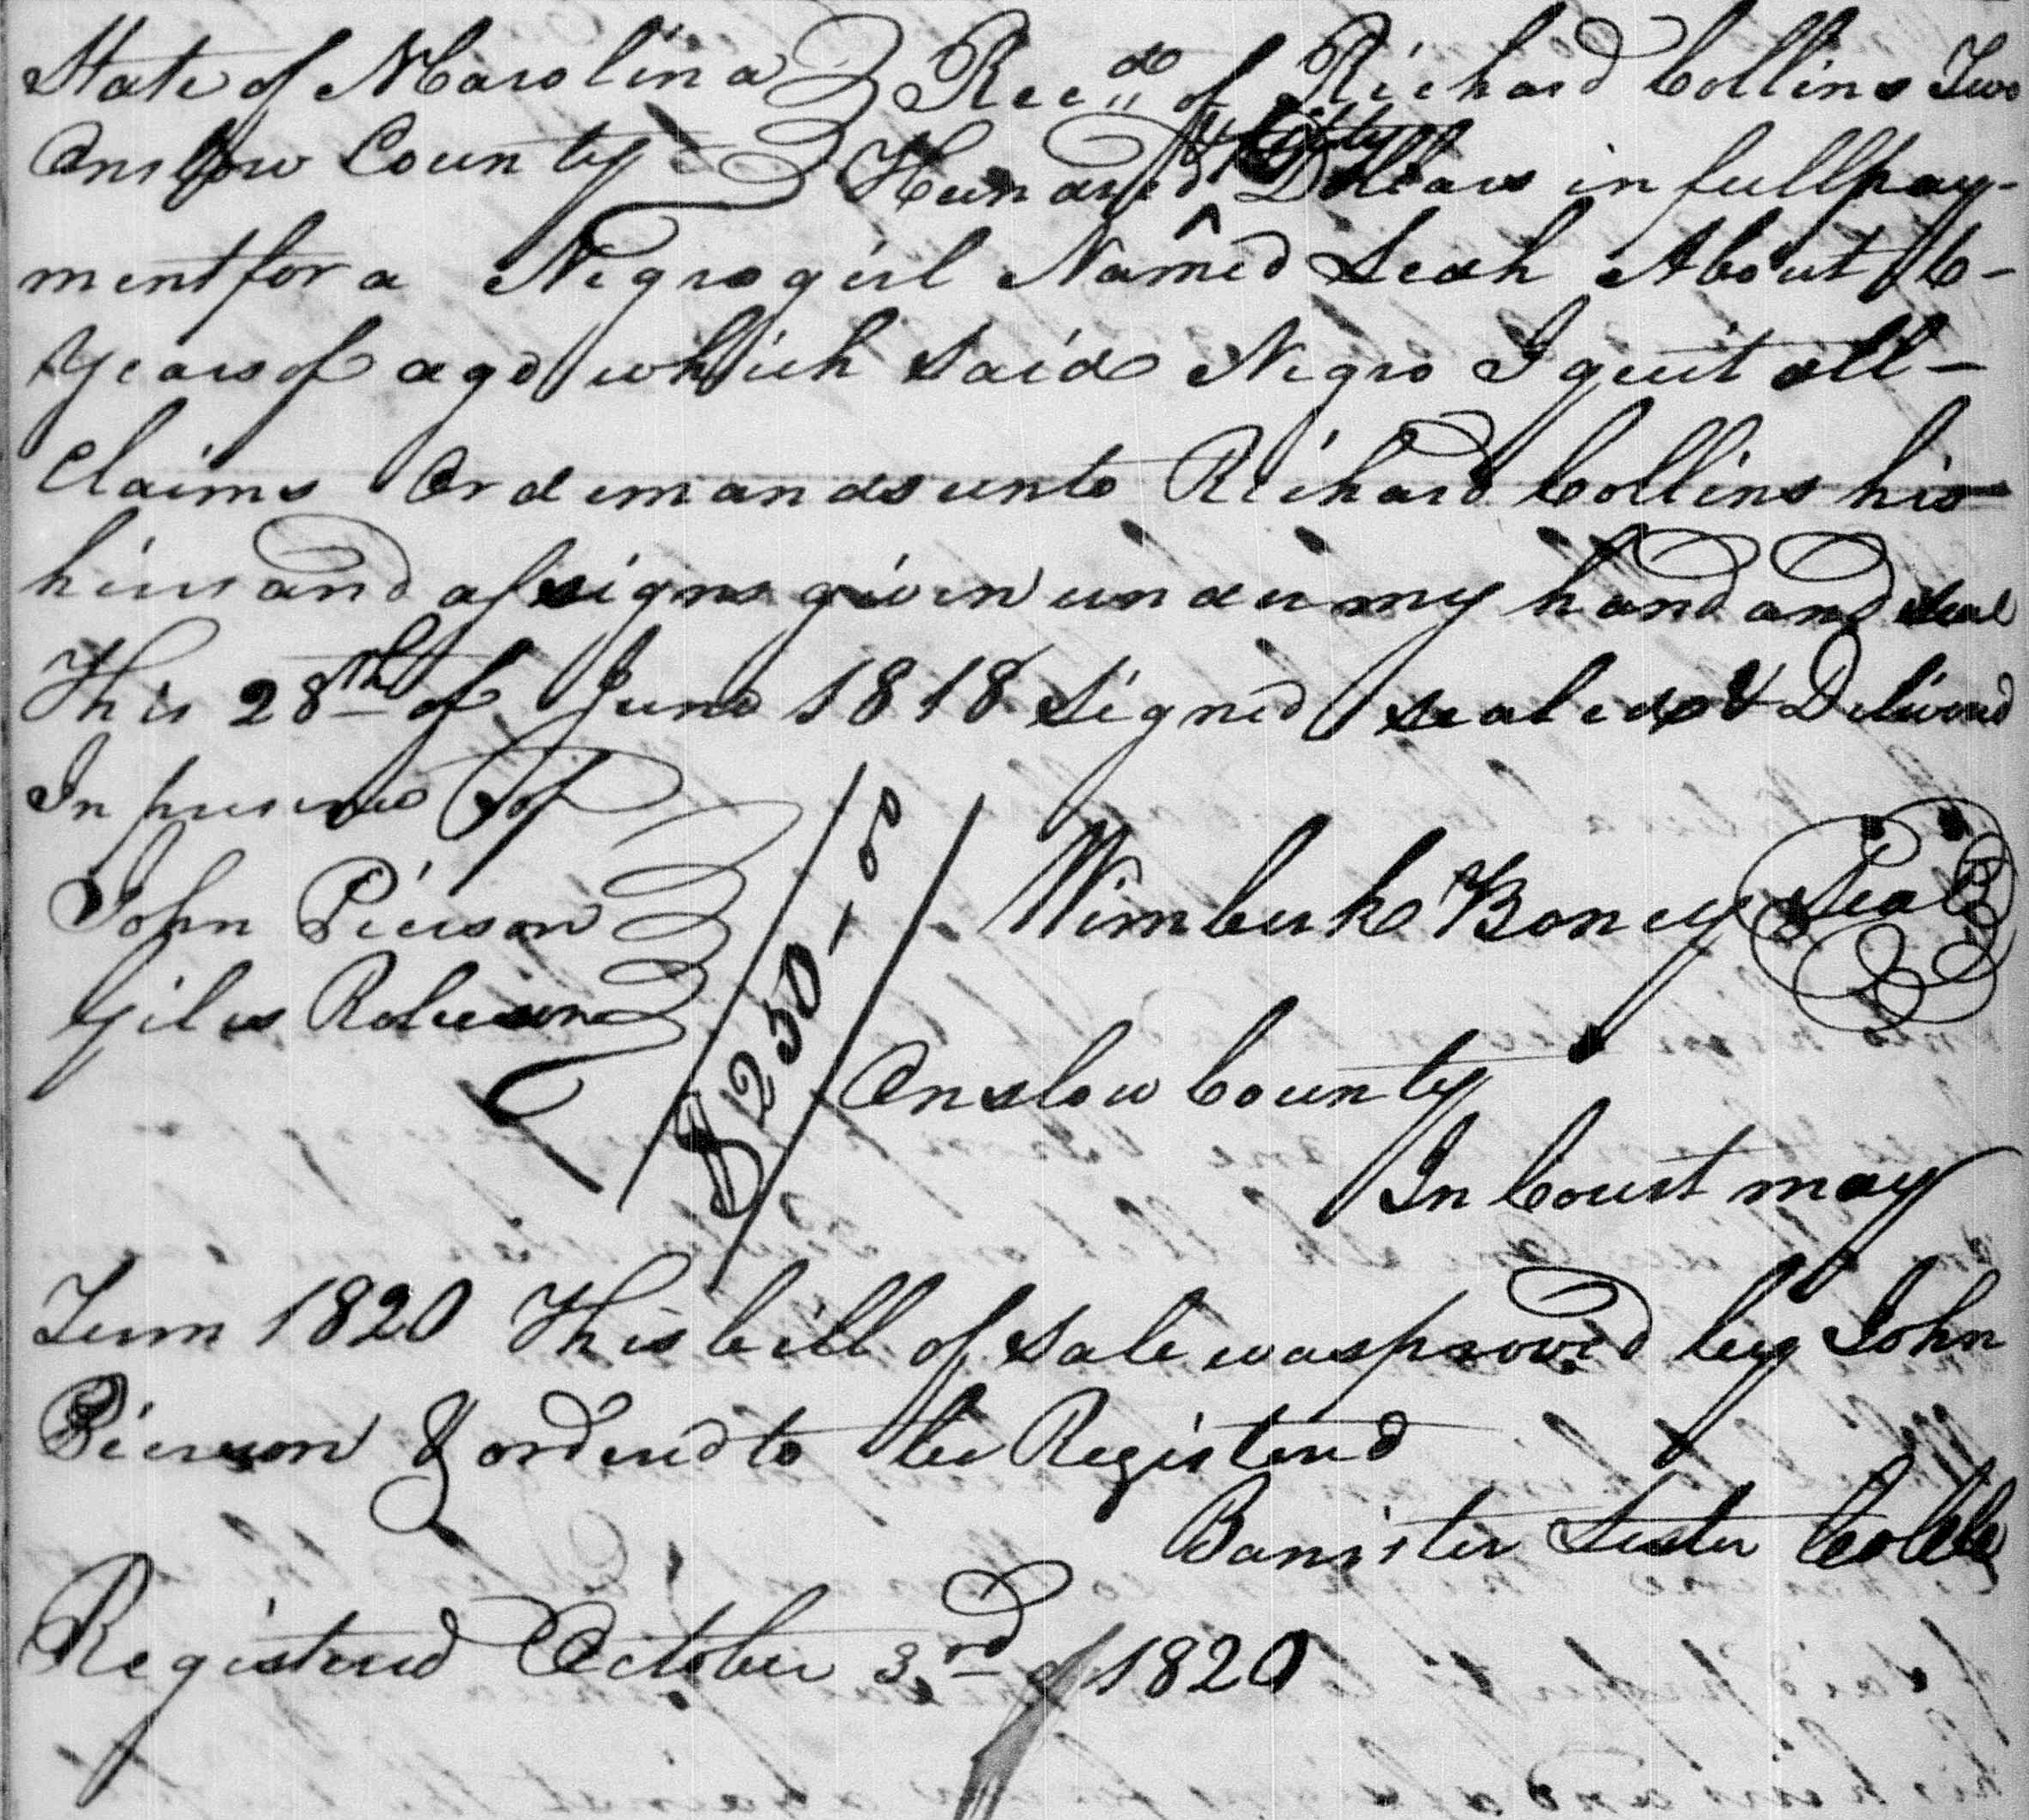 State of N Carolina Rec.d of Richard Collins Two
Onslow County Hundred & fifty Dollars in full pay-
ment for a Negro girl Named Leah About 6-
Years of age which said Negro I quit all-
Claims Or demands unto Richard Collins his
heirs and assigns given under my hand and seal
This 28th of June 1818 Signed sealed & Delivered
In presence of
John Pierson Wimberke Boney Seal
Giles Robeson
$250-00
Onslow County
In Court may
Term 1820 This bill of sale was proved by John
Pierson & ordered to be Registered
Banister Lester Co Clk
Registered October 3rd of 1820